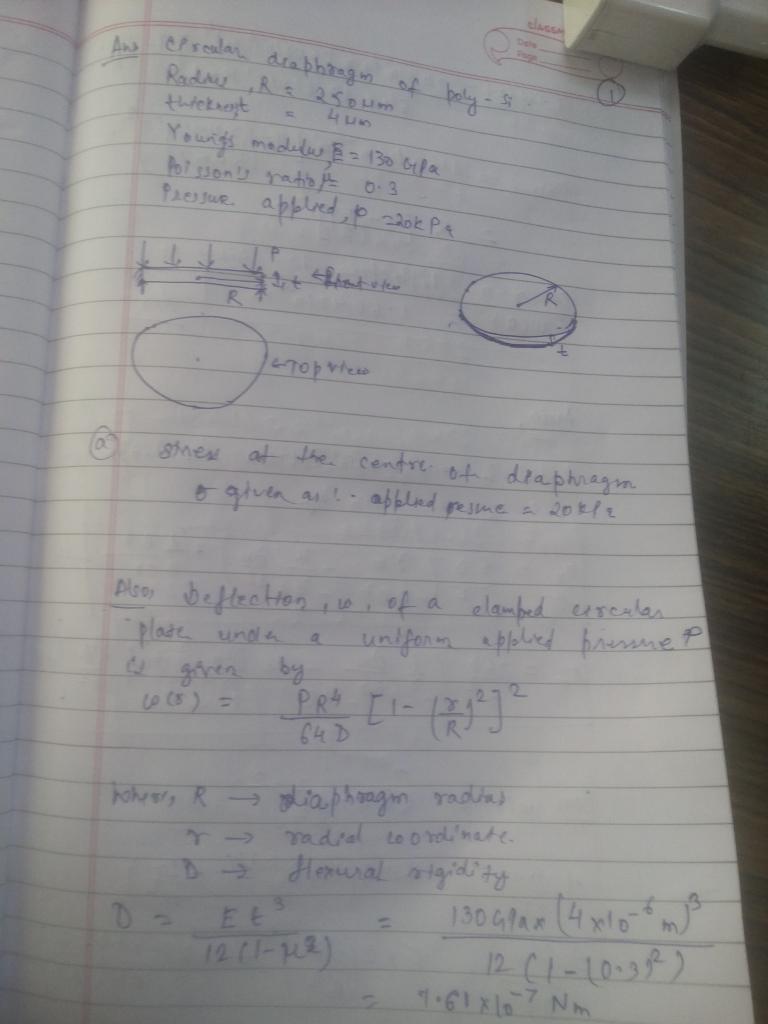 classm
Date
Page
1
Ans Circular diaphragm of poly-si.
Radius, R = 250 um
thickness = 4um
Young's modulus, E = 130 GPa
Poisson's ratio, μ = 0.3
Pressure applied, p = 20kPa
P
t ←Front view
R
R
t
←TOP view
(a) stress at the centre of diaphragm
given as :- applied = 20kPa
Also, Deflection, w, of a clamped circular
plate under a uniform applied pressure P
is given by
w(r) = PR⁴/64D [1-(r/R)²]²
where, R → diaphragm radius
r → radial coordinate.
D → flexural rigidity
D = Et³/12(1-μ²) = 130GPa x (4x10⁻⁶ m)³/12(1-(0.3)²)
= 7.61 x10⁻⁷ Nm